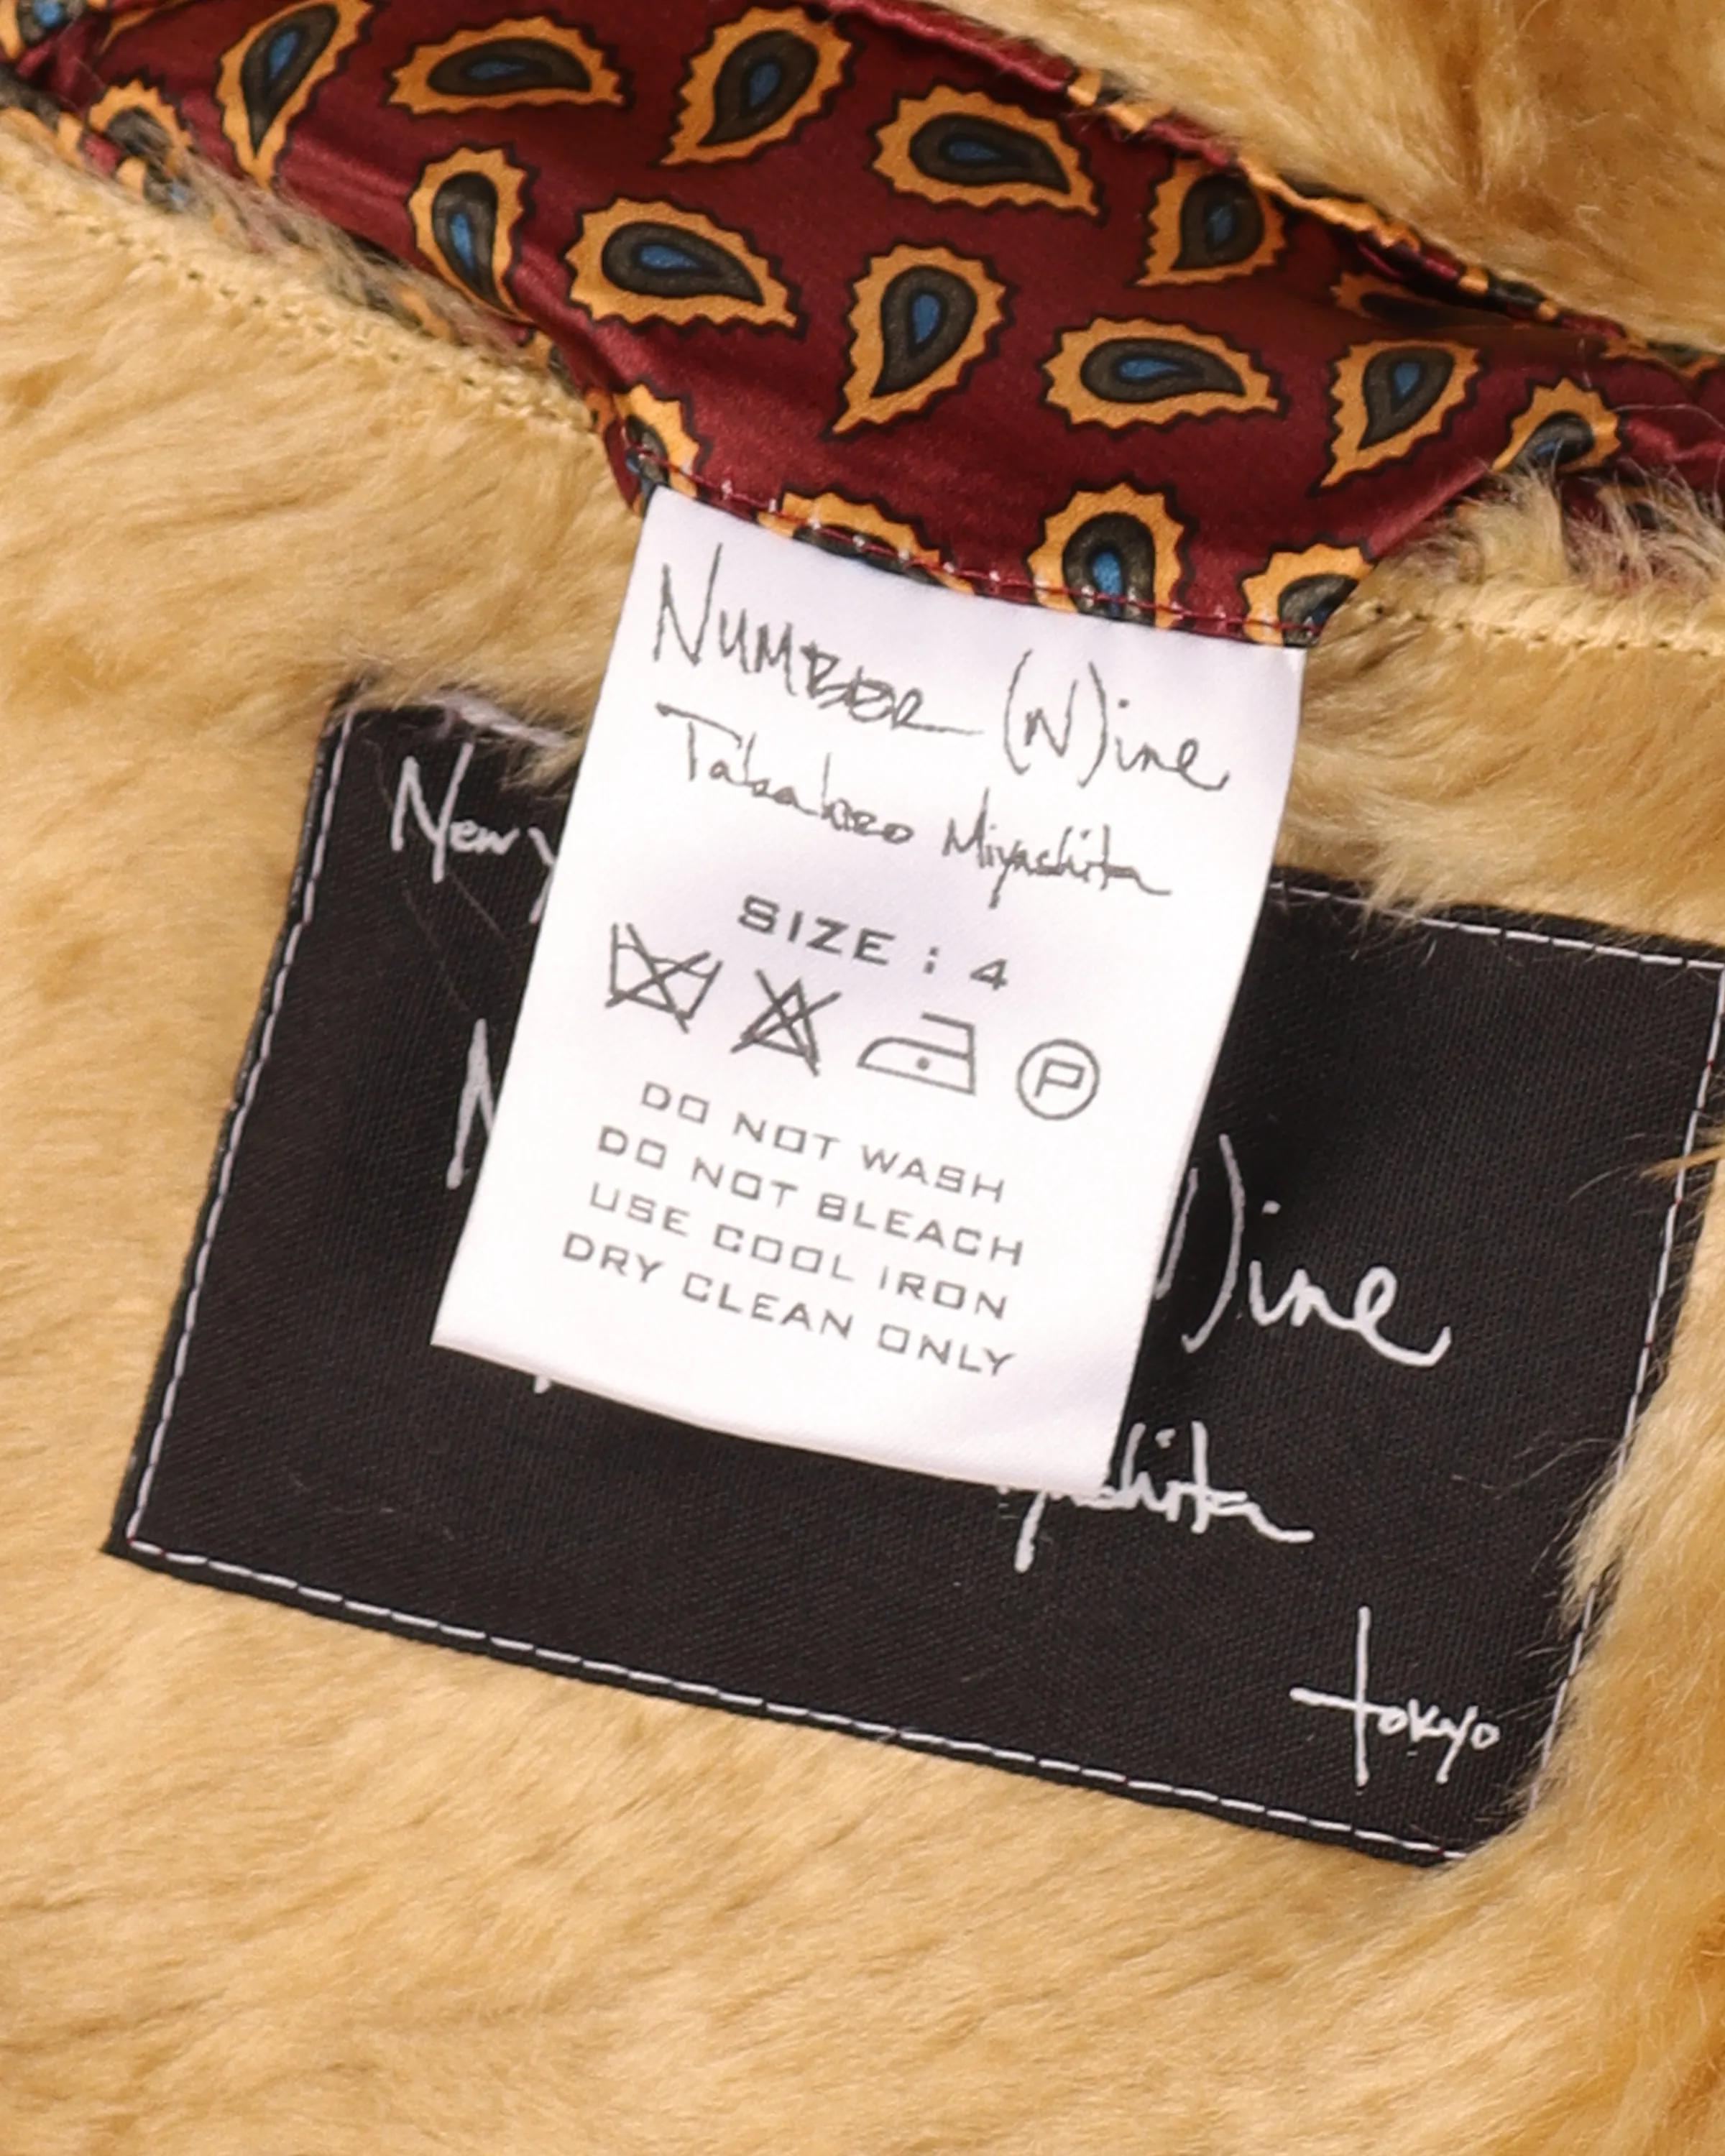 NUMBER (N)ine
Takahiro Miyashita
SIZE : 4
P
DO NOT WASH
DO NOT BLEACH
USE COOL IRON
DRY CLEAN ONLY
New
)ine
tokyo